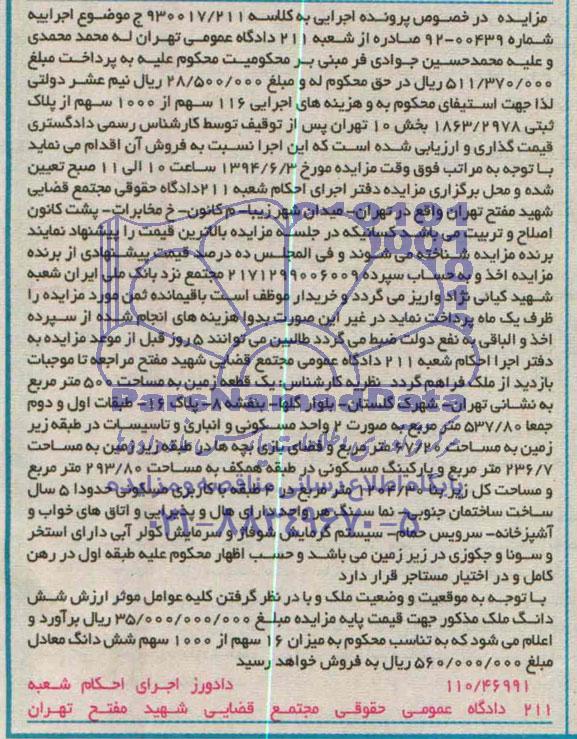 مزایده در خصوص پرونده اجرایی به کلاسه ۹۳۰۰۱۷/۲۱۱ ج موضوع اجراییه
شماره ۰۰۴۳۹-۹۲ صادره از شعبه ۲۱۱ دادگاه عمومی تهران له محمد محمدی
و علیه محمدحسین جوادی فر مبنی بر محکومیت محکوم علیه به پرداخت مبلغ
۵۱۱/۳۷۰/۰۰۰ ریال در حق محکوم له و مبلغ ۲۸/۵۰۰/۰۰۰ ریال نیم عشر دولتی
لذا جهت استیفای محکوم به و هزینه های اجرایی ۱۱۶ سهم از ۱۰۰۰ سهم از پلاک
ثبتی ۱۸۶۳/۲۹۷۸ بخش ۱۰ تهران پس از توقیف توسط کارشناس رسمی دادگستری
قیمت گذاری و ارزیابی شده است که این اجرا نسبت به فروش آن اقدام می نماید
با توجه به مراتب فوق وقت مزایده مورخ ۱۳۹۴/۶/۳ ساعت ۱۰ الی ۱۱ صبح تعیین
شده و محل برگزاری مزایده دفتر اجرای احکام شعبه ۲۱۱دادگاه حقوقی مجتمع قضایی
شهید مفتح تهران واقع در تهران- میدان شهرزیبا- م کانون- خ مخابرات- پشت کانون
اصلاح و تربیت می باشد کسانیکه در جلسه مزایده بالاترین قیمت را پیشنهاد نمایند
برنده مزایده شناخته می شوند و فی المجلس ده درصد قیمت پیشنهادی از برنده
مزایده اخذ و به حساب سپرده ۲۱۷۱۲۹۹۰۰۶۰۰۹ مجتمع نزد بانک ملی ایران شعبه
شهید کیانی نژاد واریز می گردد و خریدار موظف است باقیمانده ثمن مورد مزایده را
ظرف یک ماه پرداخت نماید در غیر این صورت بدوا هزینه های انجام شده از سپرده
اخذ و الباقی به نفع دولت ضبط می گردد طالبین می توانند ۵ روز قبل از موعد مزایده به
دفتر اجرا احکام شعبه ۲۱۱ دادگاه عمومی مجتمع قضایی شهید مفتح مراجعه تا موجبات
بازدید از ملک فراهم گردد. نظریه کارشناس: یک قطعه زمین به مساحت ۵۰۰ متر مربع
به نشانی تهران- شهرک گلستان- بلوار گلها- بنفشه ۸- پلاک ۱۶- طبقات اول و دوم
جمعا ۵۳۷/۸۰ متر مربع به صورت ۲ واحد مسکونی و انباری و تاسیسات در طبقه زیر
زمین به مساحت ۶۷/۲۰ متر مربع و فضای بازی بچه ها در طبقه زیر زمین به مساحت
۲۳۶/۷ متر مربع و پارکینگ مسکونی در طبقه همکف به مساحت ۲۹۳/۸۰ متر مربع
و مساحت کل زیربنا متر مربع در ۴ طبقه با کاربری مسکونی حدودا ۵ سال
ساخت ساختمان جنوبی- نما سنگ هر واحد دارای هال و پذیرایی و اتاق های خواب و
آشپزخانه- سرویس حمام- سیستم گرمایش شوفاژ و سرمایش کولر آبی دارای استخر
و سونا و جکوزی در زیر زمین می باشد و حسب اظهار محکوم علیه طبقه اول در رهن
کامل و در اختیار مستاجر قرار دارد
با توجه به موقعیت و وضعیت ملک و با در نظر گرفتن کلیه عوامل موثر ارزش شش
دانگ ملک مذکور جهت قیمت پایه مزایده مبلغ ۳۵/۰۰۰/۰۰۰/۰۰۰ ریال برآورد و
اعلام می شود که به تناسب محکوم به میزان ۱۶ سهم از ۱۰۰۰ سهم شش دانگ معادل
مبلغ ۵۶۰/۰۰۰/۰۰۰ ریال به فروش خواهد رسید
۱۱۰/۴۶۹۹۱ دادورز اجرای احکام شعبه
۲۱۱ دادگاه عمومی حقوقی مجتمع قضایی شهید مفتح تهران
ParsNamadData
پایگاه اطلاع رسانی مناقصه و مزایده
۰۲۱-۸۸۳۴۹۶۷۰-۵